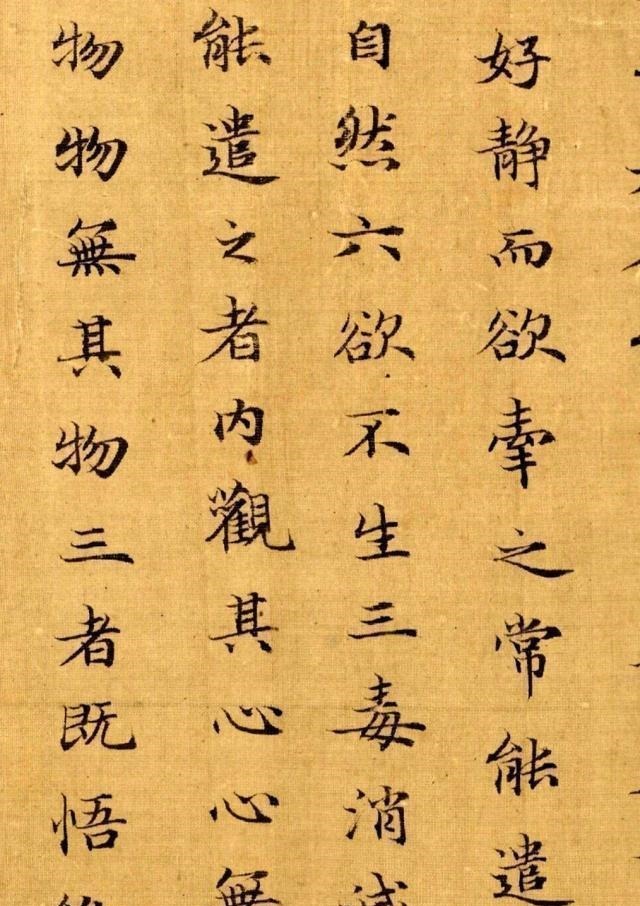 好静而欲牽之常能遣
自然六欲不生三毒消
能遣之者内觀其心心無
物物無其物三者既悟